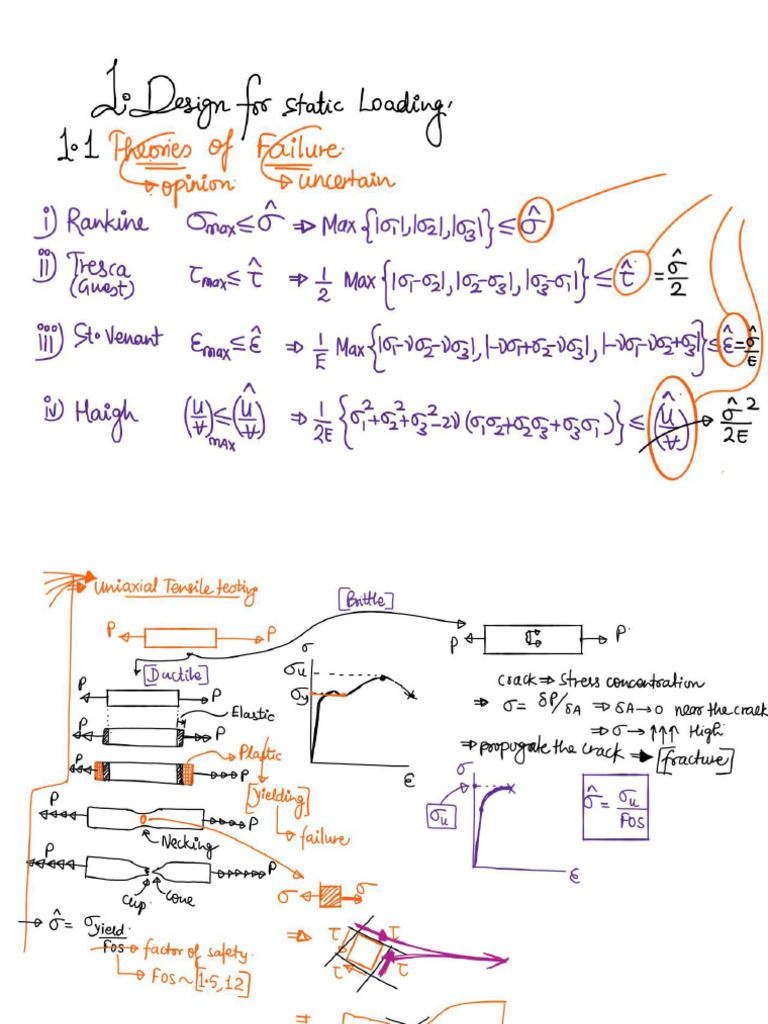 1. Design for static Loading.
1.1 Theories of Failure.
→ opinion → uncertain
i) Rankine σmax ≤ σ̂ ⇒ Max{|σ1|, |σ2|, |σ3|} ≤ σ̂
ii) Tresca (Guest) τmax ≤ τ̂ ⇒ 1/2 Max{|σ1-σ2|, |σ2-σ3|, |σ3-σ1|} ≤ τ̂ = σ̂/2
iii) St. Venant εmax ≤ ε̂ ⇒ 1/E Max{|σ1-νσ2-νσ3|, |-νσ1+σ2-νσ3|, |-νσ1-νσ2+σ3|} ≤ ε̂ = σ̂/E
iv) Haigh (U/V)max ≤ (Û/V) ⇒ 1/2E {σ1²+σ2²+σ3²-2ν(σ1σ2+σ2σ3+σ3σ1)} ≤ (Û/V) → σ̂²/2E
⇒ Uniaxial Tensile testing
[Brittle]
P P
P P
[Ductile]
σ
σu
σy
ε
P P
Elastic
P P
Plastic
P P
[yielding]
→ failure
P P
Necking
P P
Cup Cone
→ σ̂ = σyield/FOS
→ factor of safety.
→ FOS ~ [1.5, 12]
crack ⇒ stress concentration
⇒ σ = δP/δA ⇒ δA → 0 near the crack
⇒ σ → ↑↑↑ High
⇒ propugrate the crack → [fracture]
σ
σu
ε
σ̂ = σu/FOS
σ σ
⇒ τ τ
τ τ
=